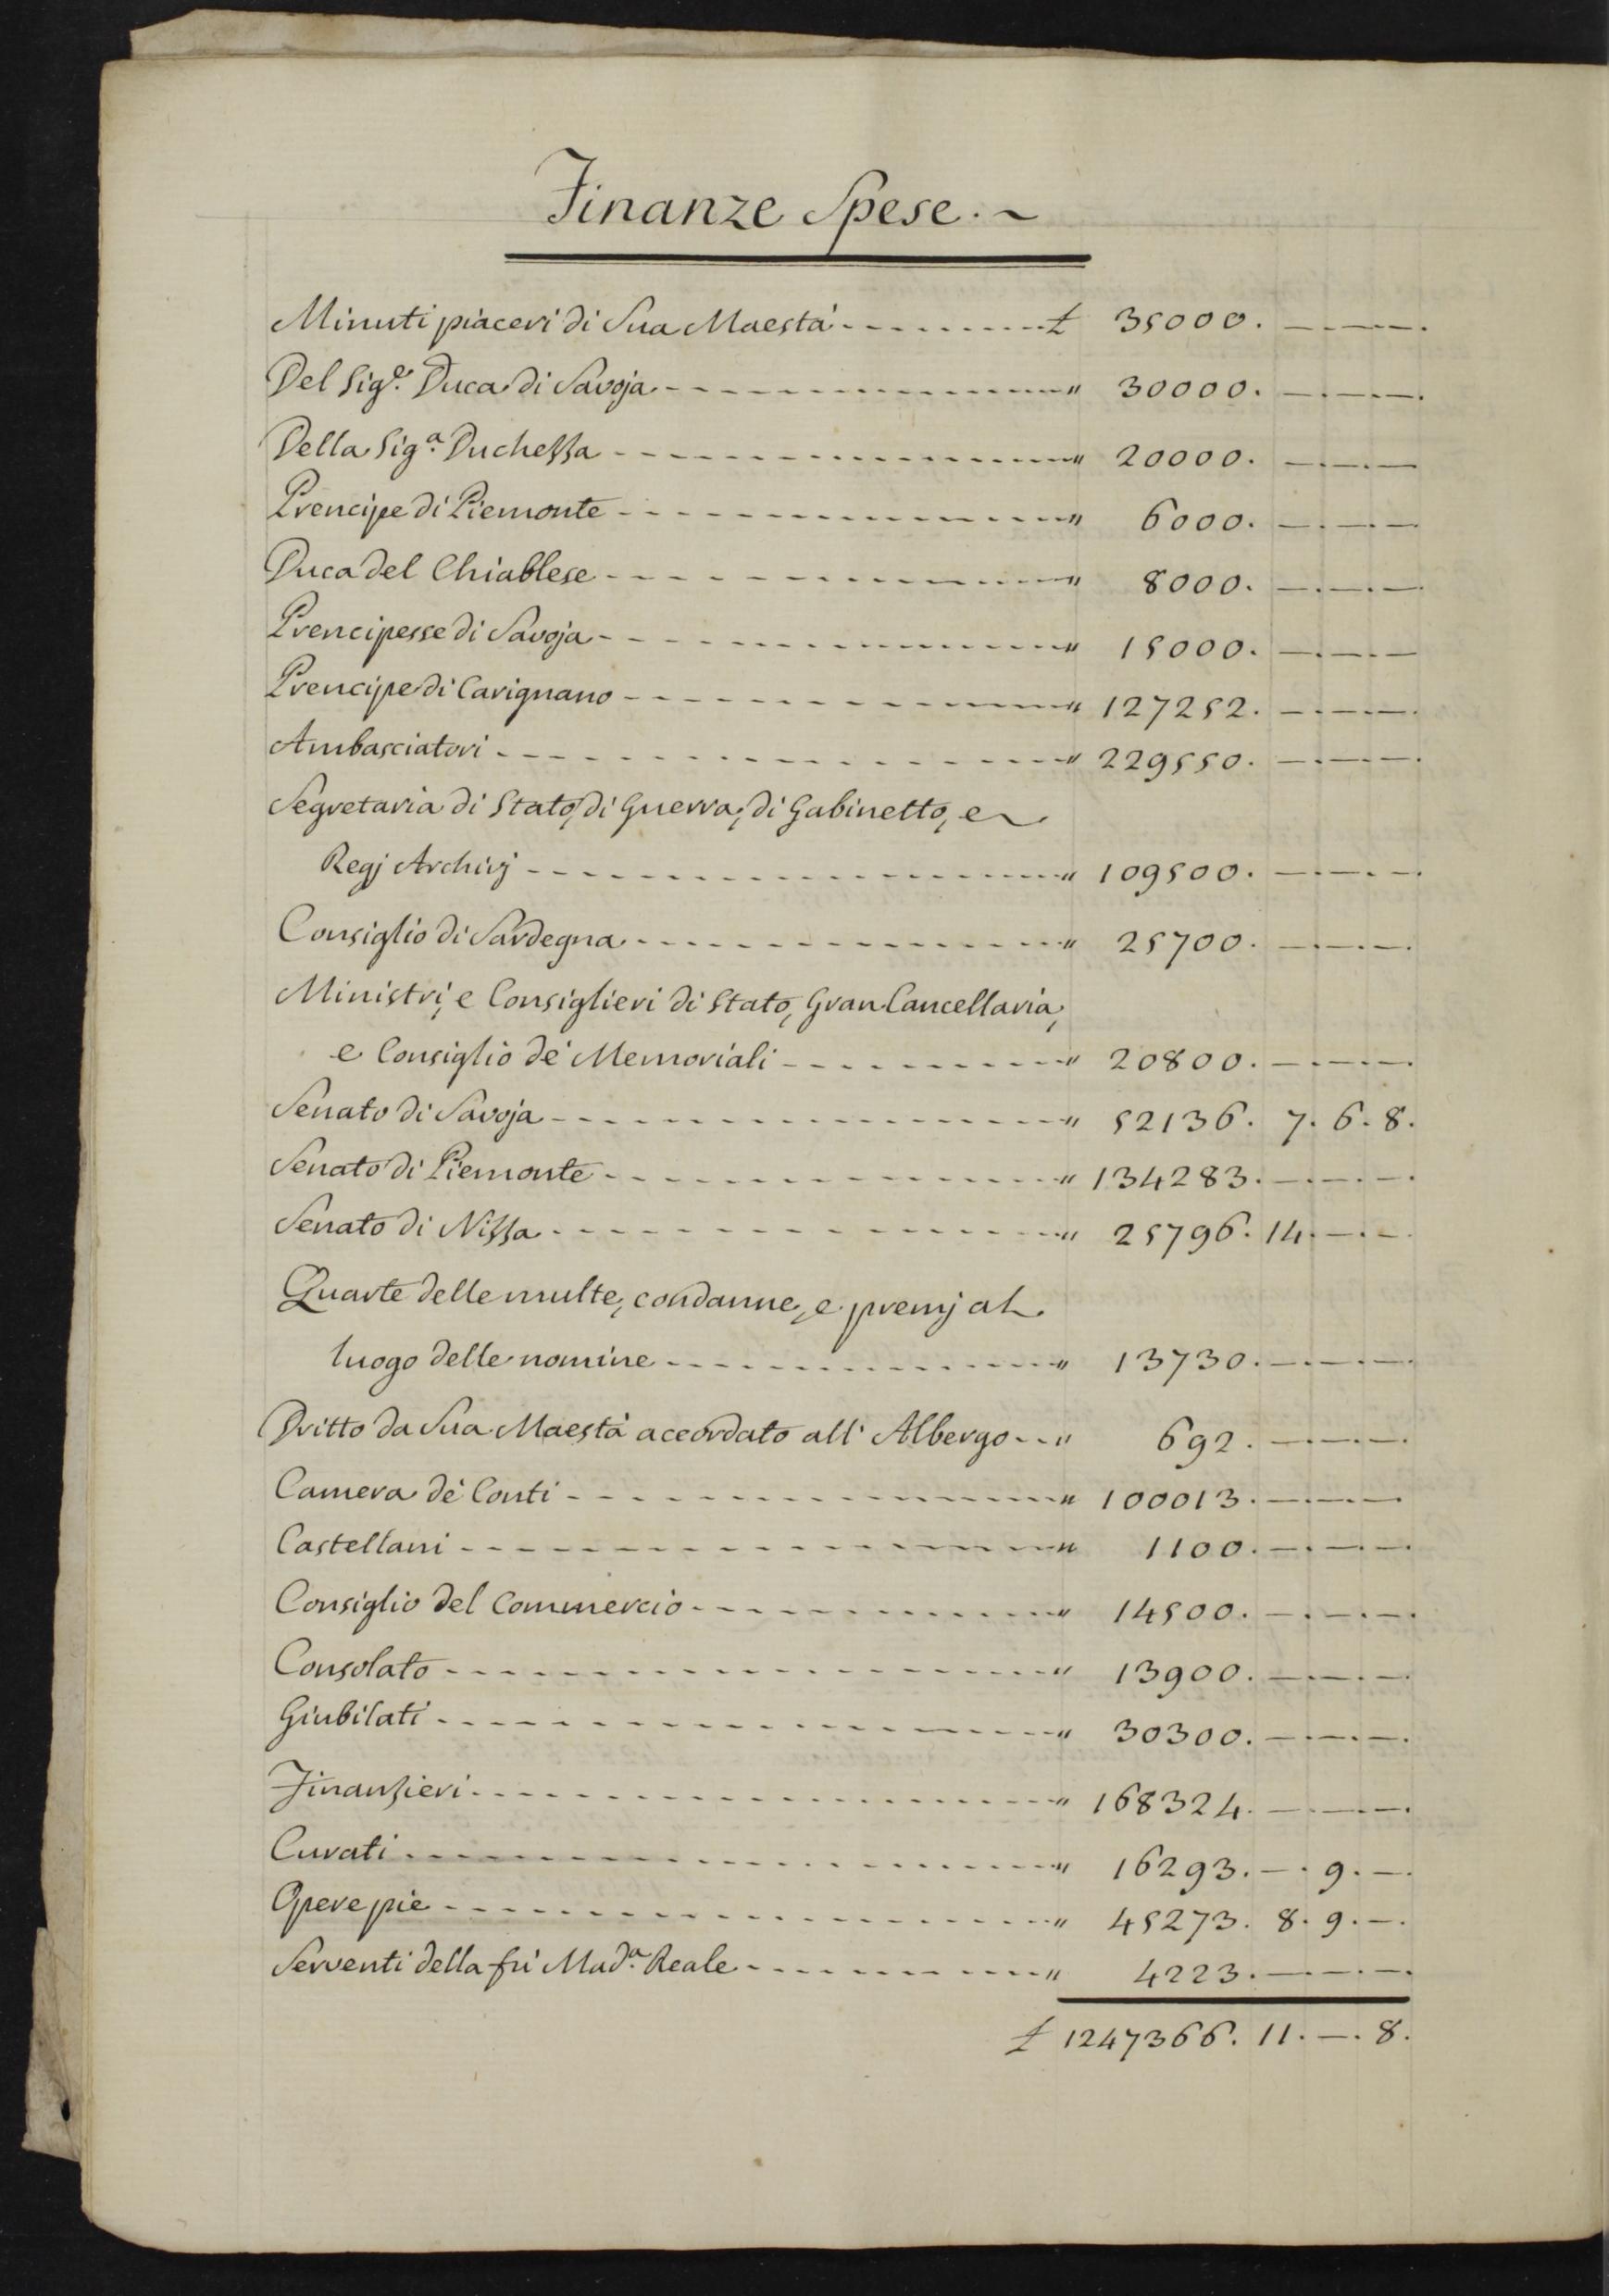 Finanze Spese. ~
Minuti piaceri di Sua Maestà - - - - - - - - - £ 35000. —.—.—.
Del Sig.e Duca di Savoja - - - - - - - - - " 30000. —.—.—.
Della Sig.a Duchessa - - - - - - - - - " 20000. —.—.—
Prencipe di Piemonte - - - - - - - - - " 6000. —.—.—
Duca del Chiablese - - - - - - - - - " 8000. —.—.—
Prencipesse di Savoja - - - - - - - - - " 15000. —.—.—
Prencipe di Carignano - - - - - - - - - " 127252. —.—.—
Ambasciatori - - - - - - - - - " 229550. —.—.—.
Segretaria di Stato, di Guerra, di Gabinetto, e
Regj Archivj - - - - - - - - - " 109500. —.—.—.
Consiglio di Sardegna - - - - - - - - - " 25700. —.—.—.
Ministri, e Consiglieri di Stato, Gran Cancellaria,
e Consiglio de' Memoriali - - - - - - - - - " 20800. —.—.—.
Senato di Savoja - - - - - - - - - " 52136. 7. 6. 8.
Senato di Piemonte - - - - - - - - - " 134283. —.—.—.
Senato di Nissa - - - - - - - - - " 25796. 14. —.—.
Quarte delle multe, condanne, e premj al
luogo delle nomine - - - - - - - - - " 13730. —.—.—.
Dritto da Sua Maestà accordato all' Albergo - - " 692. —.—.—.
Camera de' Conti - - - - - - - - - " 100013. —.—.—
Castellani - - - - - - - - - " 1100. —.—.—.
Consiglio del Commercio - - - - - - - - - " 14500. —.—.—.
Consolato - - - - - - - - - " 13900. —.—.—.
Giubilati - - - - - - - - - " 30300. —.—.—.
Finanzieri - - - - - - - - - " 168324. —.—.—.
Curati - - - - - - - - - " 16293. —. 9. —.
Opere pie - - - - - - - - - " 45273. 8. 9. —.
Serventi della fù Mad.a Reale - - - - - - - - - " 4223. —.—.—.
£ 1247366. 11. —. 8.